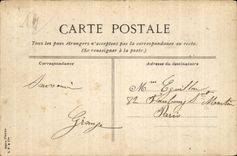 CARTE POSTALE
Tous les pays étrangers n'acceptent pas la correspondance au recto.
(Se renseigner à la poste.)
Correspondance
Adresse du destinataire
Souvenir
Mme
82 Faubourg St Martin
Paris